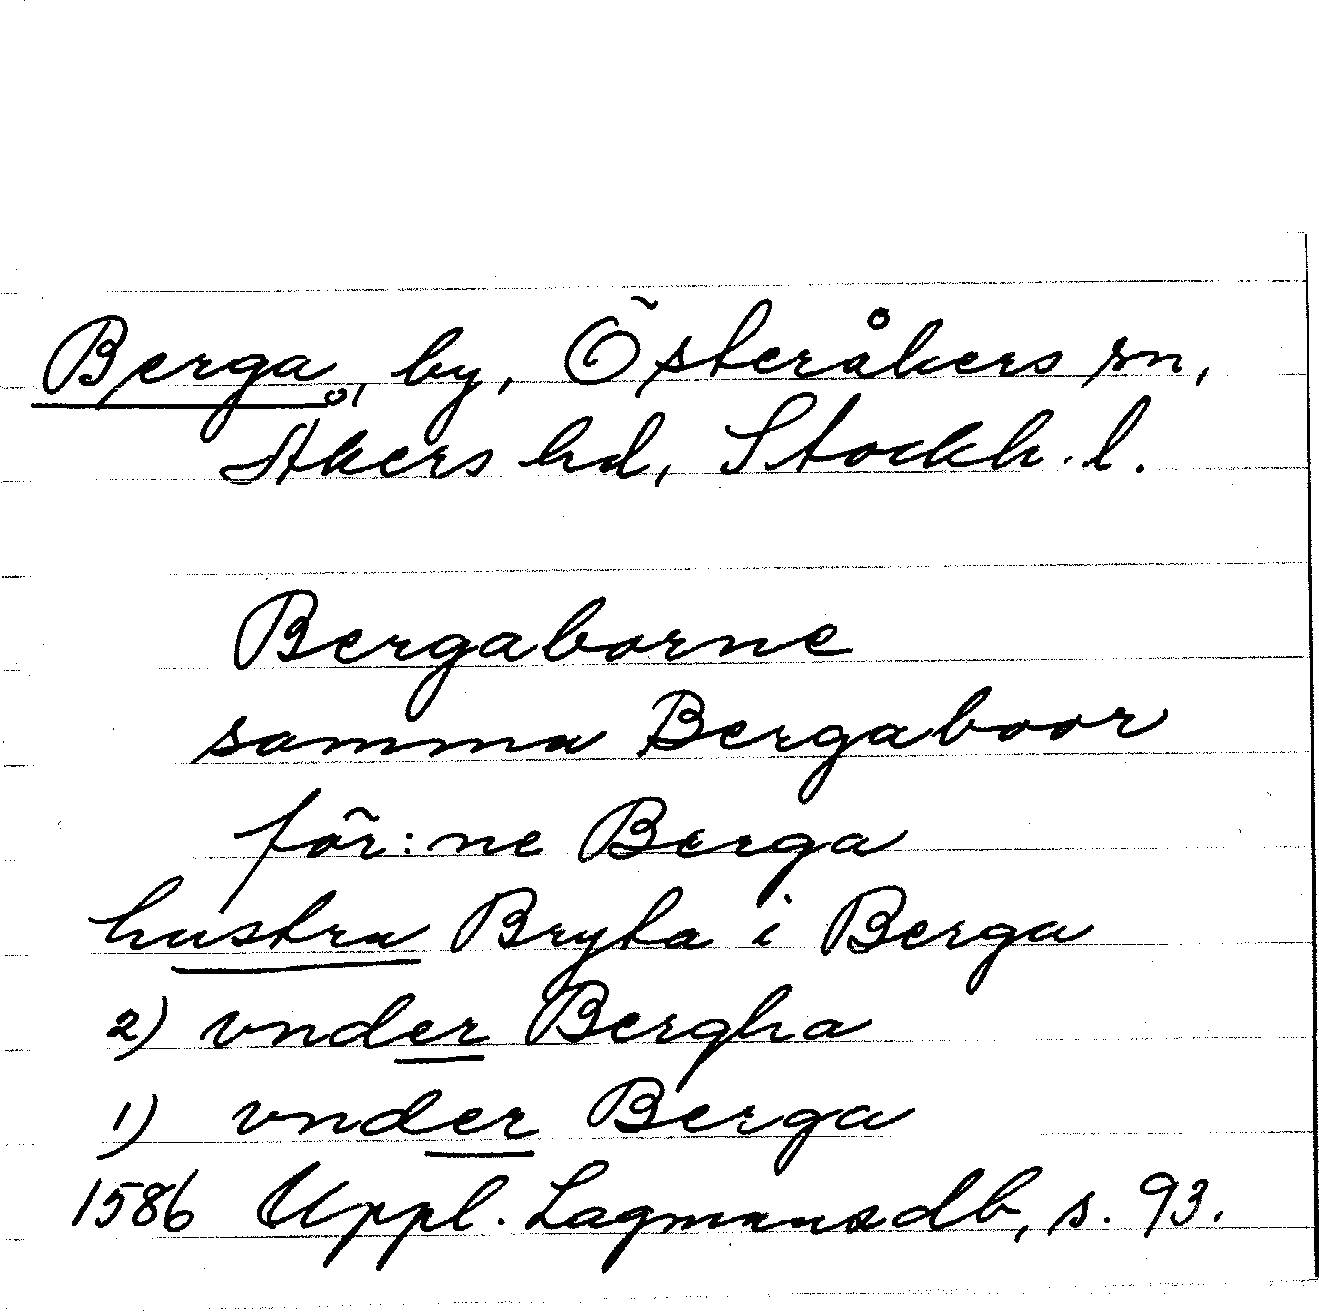 Berga, by, Österåkers sn,
Åkers hd, Stockh. l.
Bergaborne
samma Bergaboor
för:ne Berga
hustru Bryta i Berga
2) vnder Bergha
1) vnder Berga
1586 Uppl. Lagmansdb, s. 93.